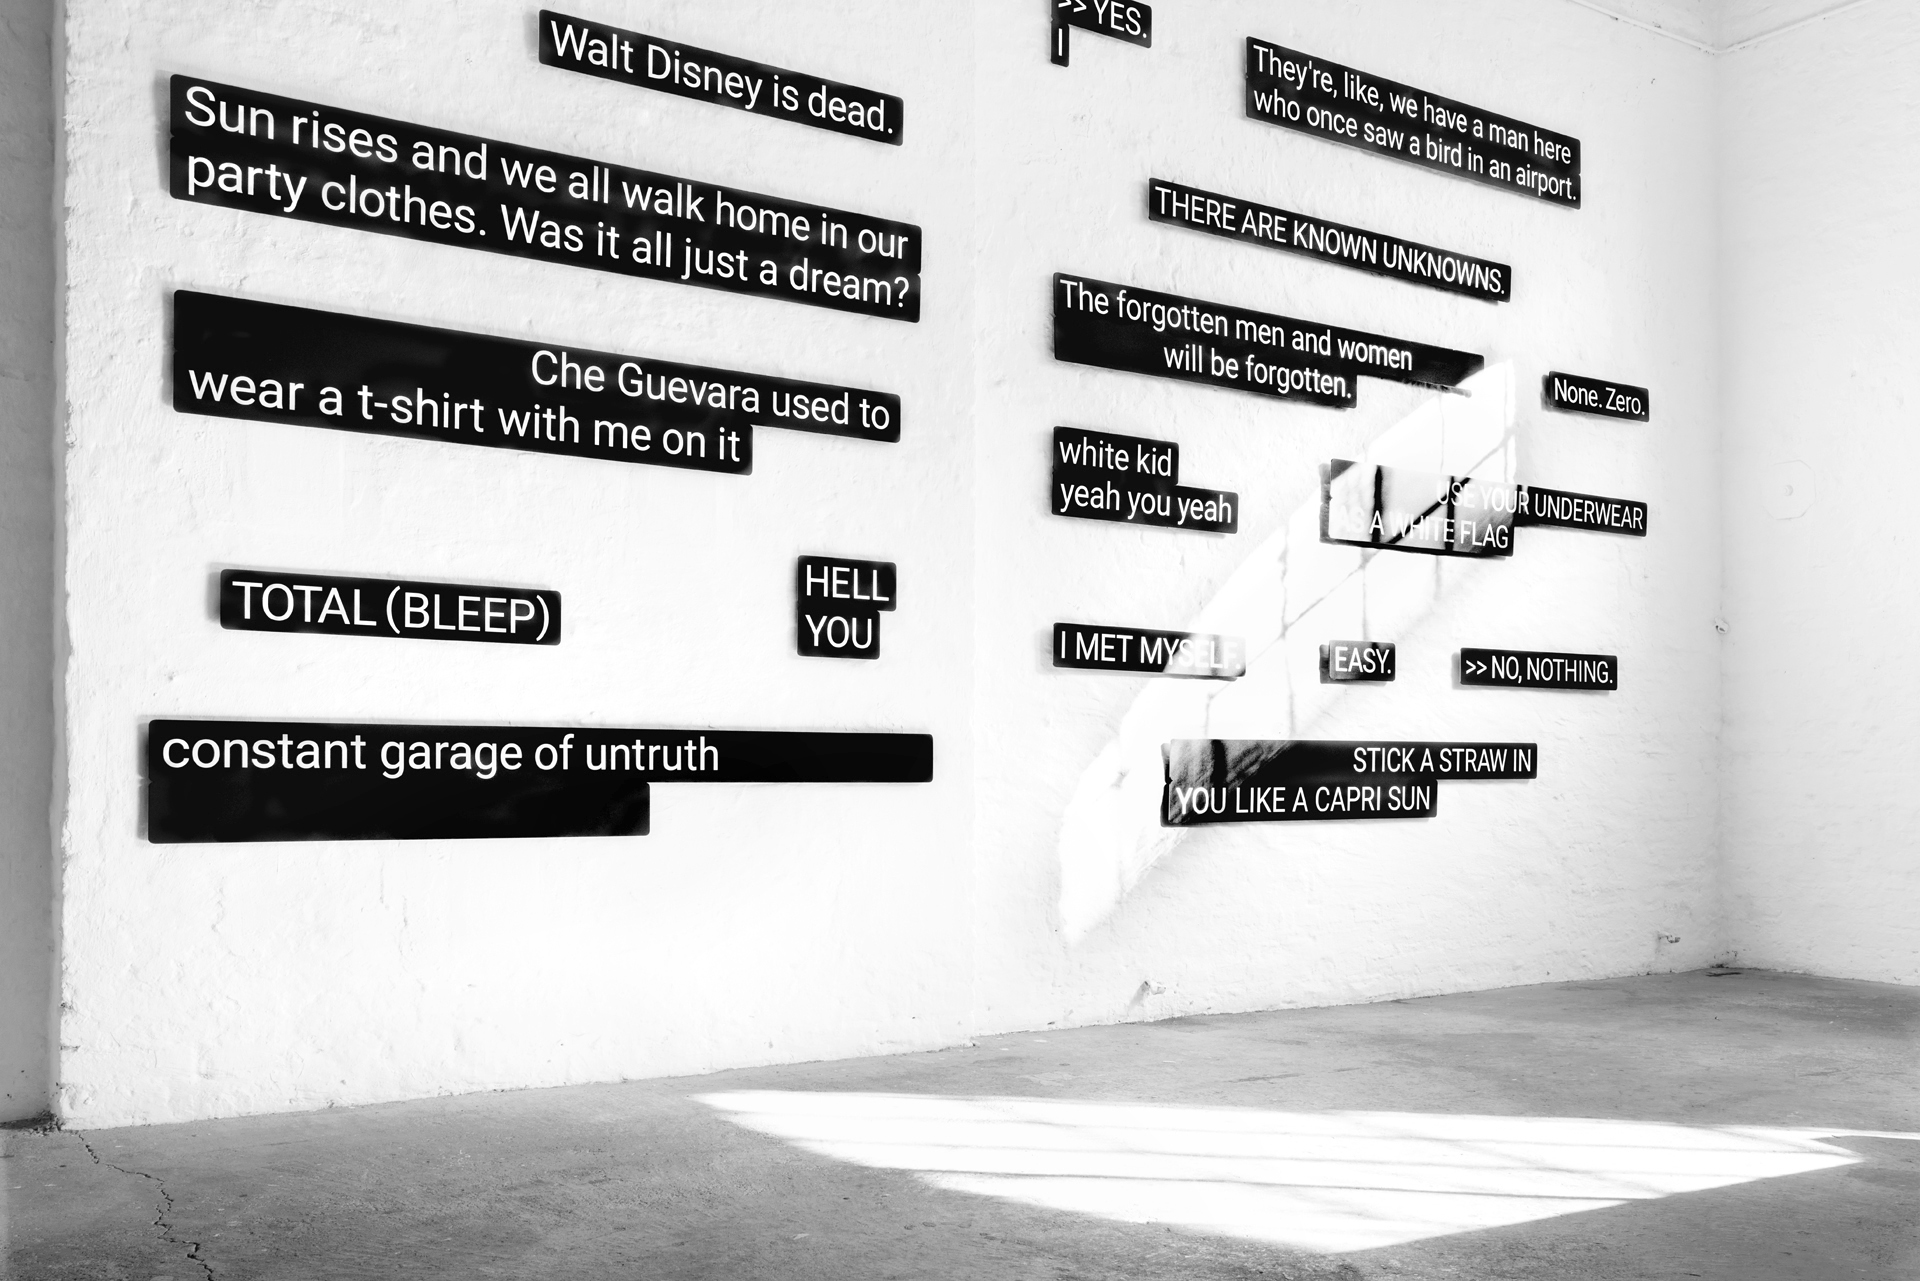 Walt Disney is dead.
Sun rises and we all walk home in our
party clothes. Was it all just a dream?
Che Guevara used to
wear a t-shirt with me on it
TOTAL (BLEEP)
HELL
YOU
constant garage of untruth
>> YES.
I
They're, like, we have a man here
who once saw a bird in an airport.
THERE ARE KNOWN UNKNOWNS.
The forgotten men and women
will be forgotten.
None. Zero.
white kid
yeah you yeah
USE YOUR UNDERWEAR
AS A WHITE FLAG
I MET MYSELF.
EASY.
>> NO, NOTHING.
STICK A STRAW IN
YOU LIKE A CAPRI SUN